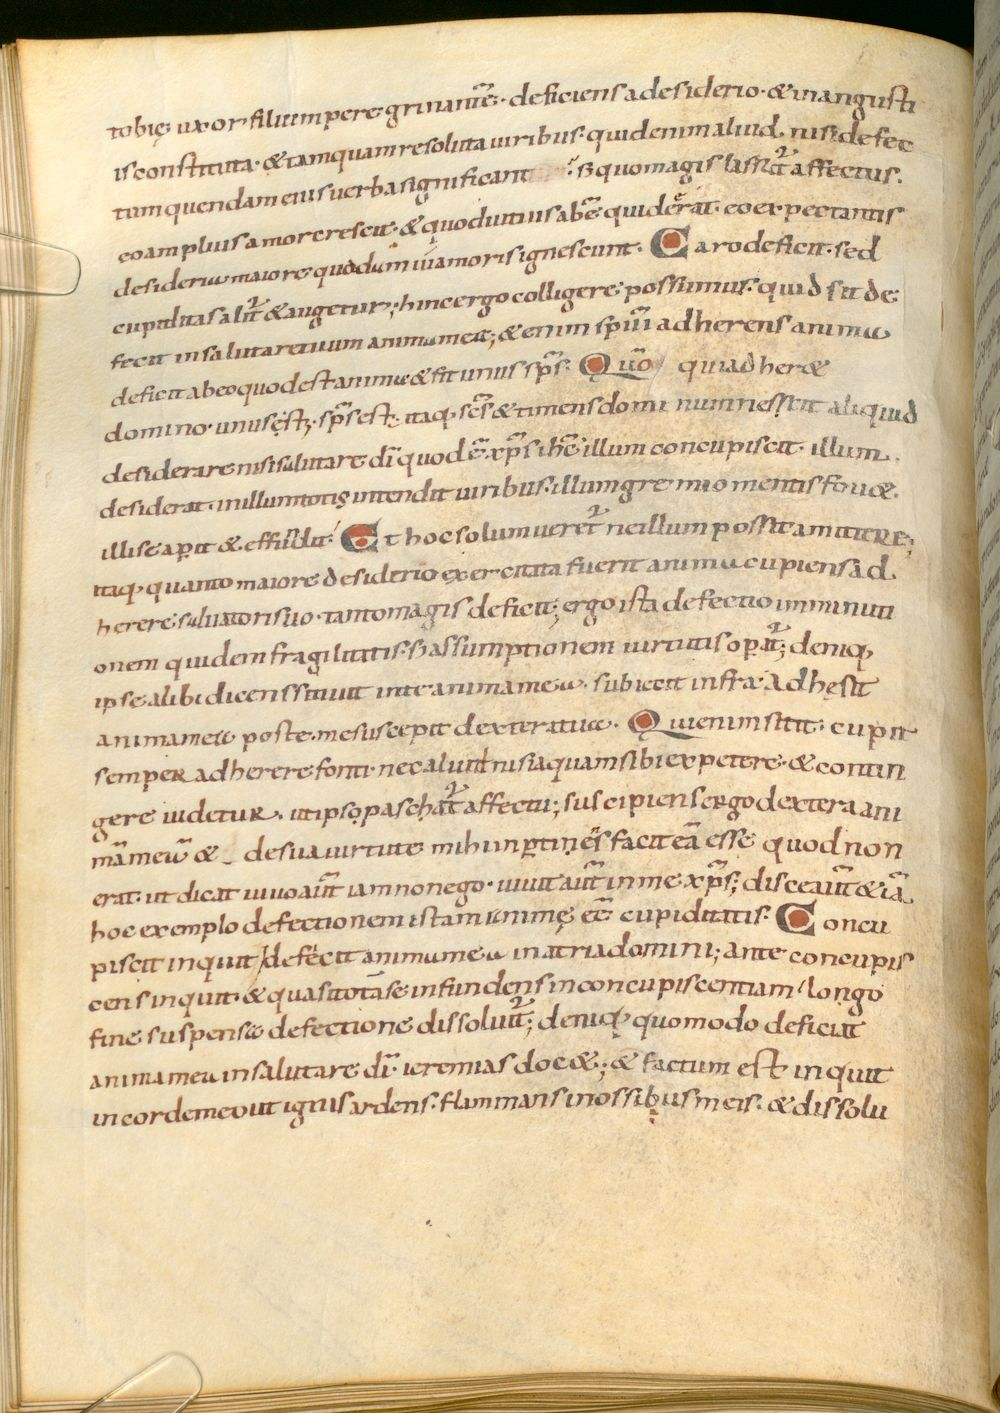 tobię uxor filium peregrinantē · deficiens a desiderio · & in angusti
is constituta · & tamquam resoluta uiribus · quid enim aliud, nisi defec
tum quendam eius uerba significant · s; quo magis lassat̃ affectus.
eo amplius amor crescit · & quo diutius abēē quid erat · eo expectantis
desideriu maiore quodam ui amoris ignescunt · Caro deficit · sed
cupiditas alit̃ & augetur ; hinc ergo colligere possumus · quid sit de
fecit in salutare tuum anima mea ; & enim sp̄ui adherens anima
deficit ab eo quod est anima & fit unus sp̄s · Quō qui adher&
domino · unus ęst, sp̄s est · itaq; sc̄s & timens domi num nescit aliquid
desiderare nisi salutare dī quod ē xp̄s ih̄s illum concupiscit · illum
desiderat · in illum totis intendit uiribus · illum gremio mentis fou& ·
illi se aperit & effundit · Et hoc solum ueret̃ ne illum possit amittere ;
itaq; quanto maiore desiderio exercitata fuerit anima cupiens ad
herere saluatori suo · tanto magis deficit ; ergo ista defectio imminuti
onem quidem fragilitatis · s; assumptionem uirtutis operat̃ ; deniq;
ipse alibi dicens sitiuit in te anima mea · subiecit infra · adhęsit
anima mea post te · me suscepit dextera tua · Qui enim sitit · cupit
semper adherere fonti · nec aliud nisi aquam sibi expetere · & contin
gere uidetur · ut ipso pascat̃ affectu ; suscipiens ergo dextera ani
mā meā & de sua uirtute mihi inpertiens facit eā esse quod non
erat · ut dicat uiuo aūt iam non ego · uiuit aūt in me xp̄s ; disce aūt & iā
hoc exemplo defectionem istam animę eē cupiditatis · Concu
piscit inquit & defecit anima mea in atria domini ; ante concupis
cens inquit · & quasi tota se infundens in concupiscentiam longo
fine suspensa defectione dissoluit̃ ; deniq; quomodo deficiat
anima mea in salutare dī · ieremias doc& ; & factum est inquit
in corde meo ut ignis ardens · flammans in ossibus meis · & dissolu